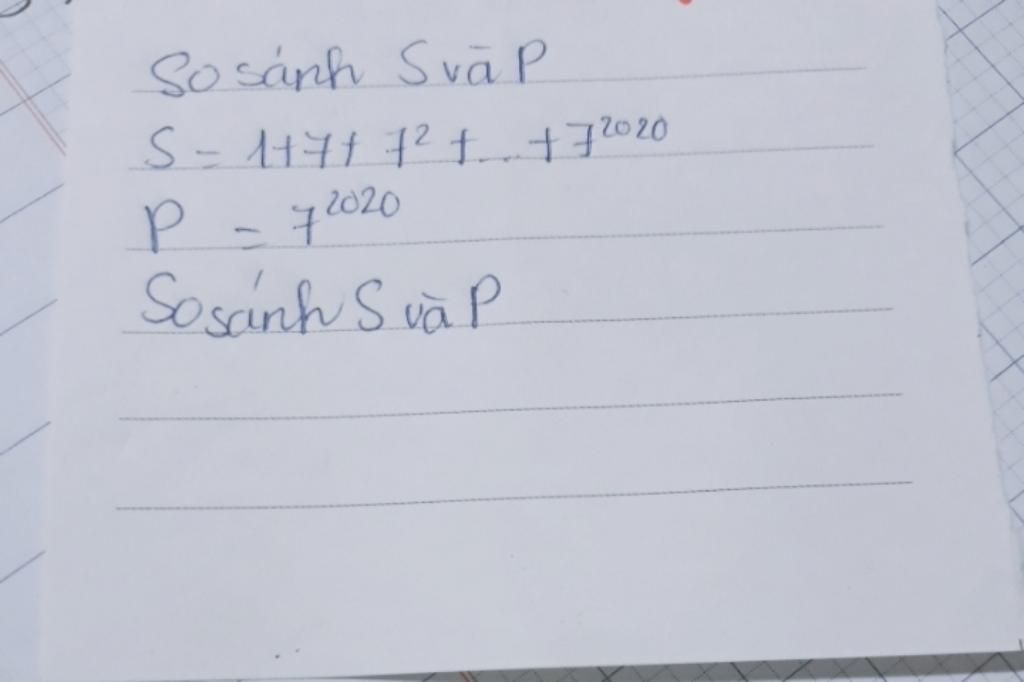 So sánh S và P
S = 1+7+7²+...+7²⁰²⁰
P = 7²⁰²⁰
So sánh S và P